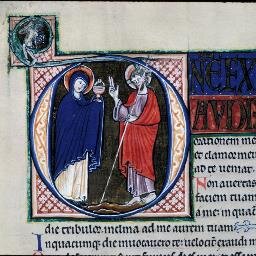 NE EX
AUDI
orationem me
et clamor meus
ad te ueniat.
Non auertas
faciem tuam
a me: in quacū
die tribulor. inclina ad me aurem tuam
In quacumq; die inuocauero te: uelocit exaudi m